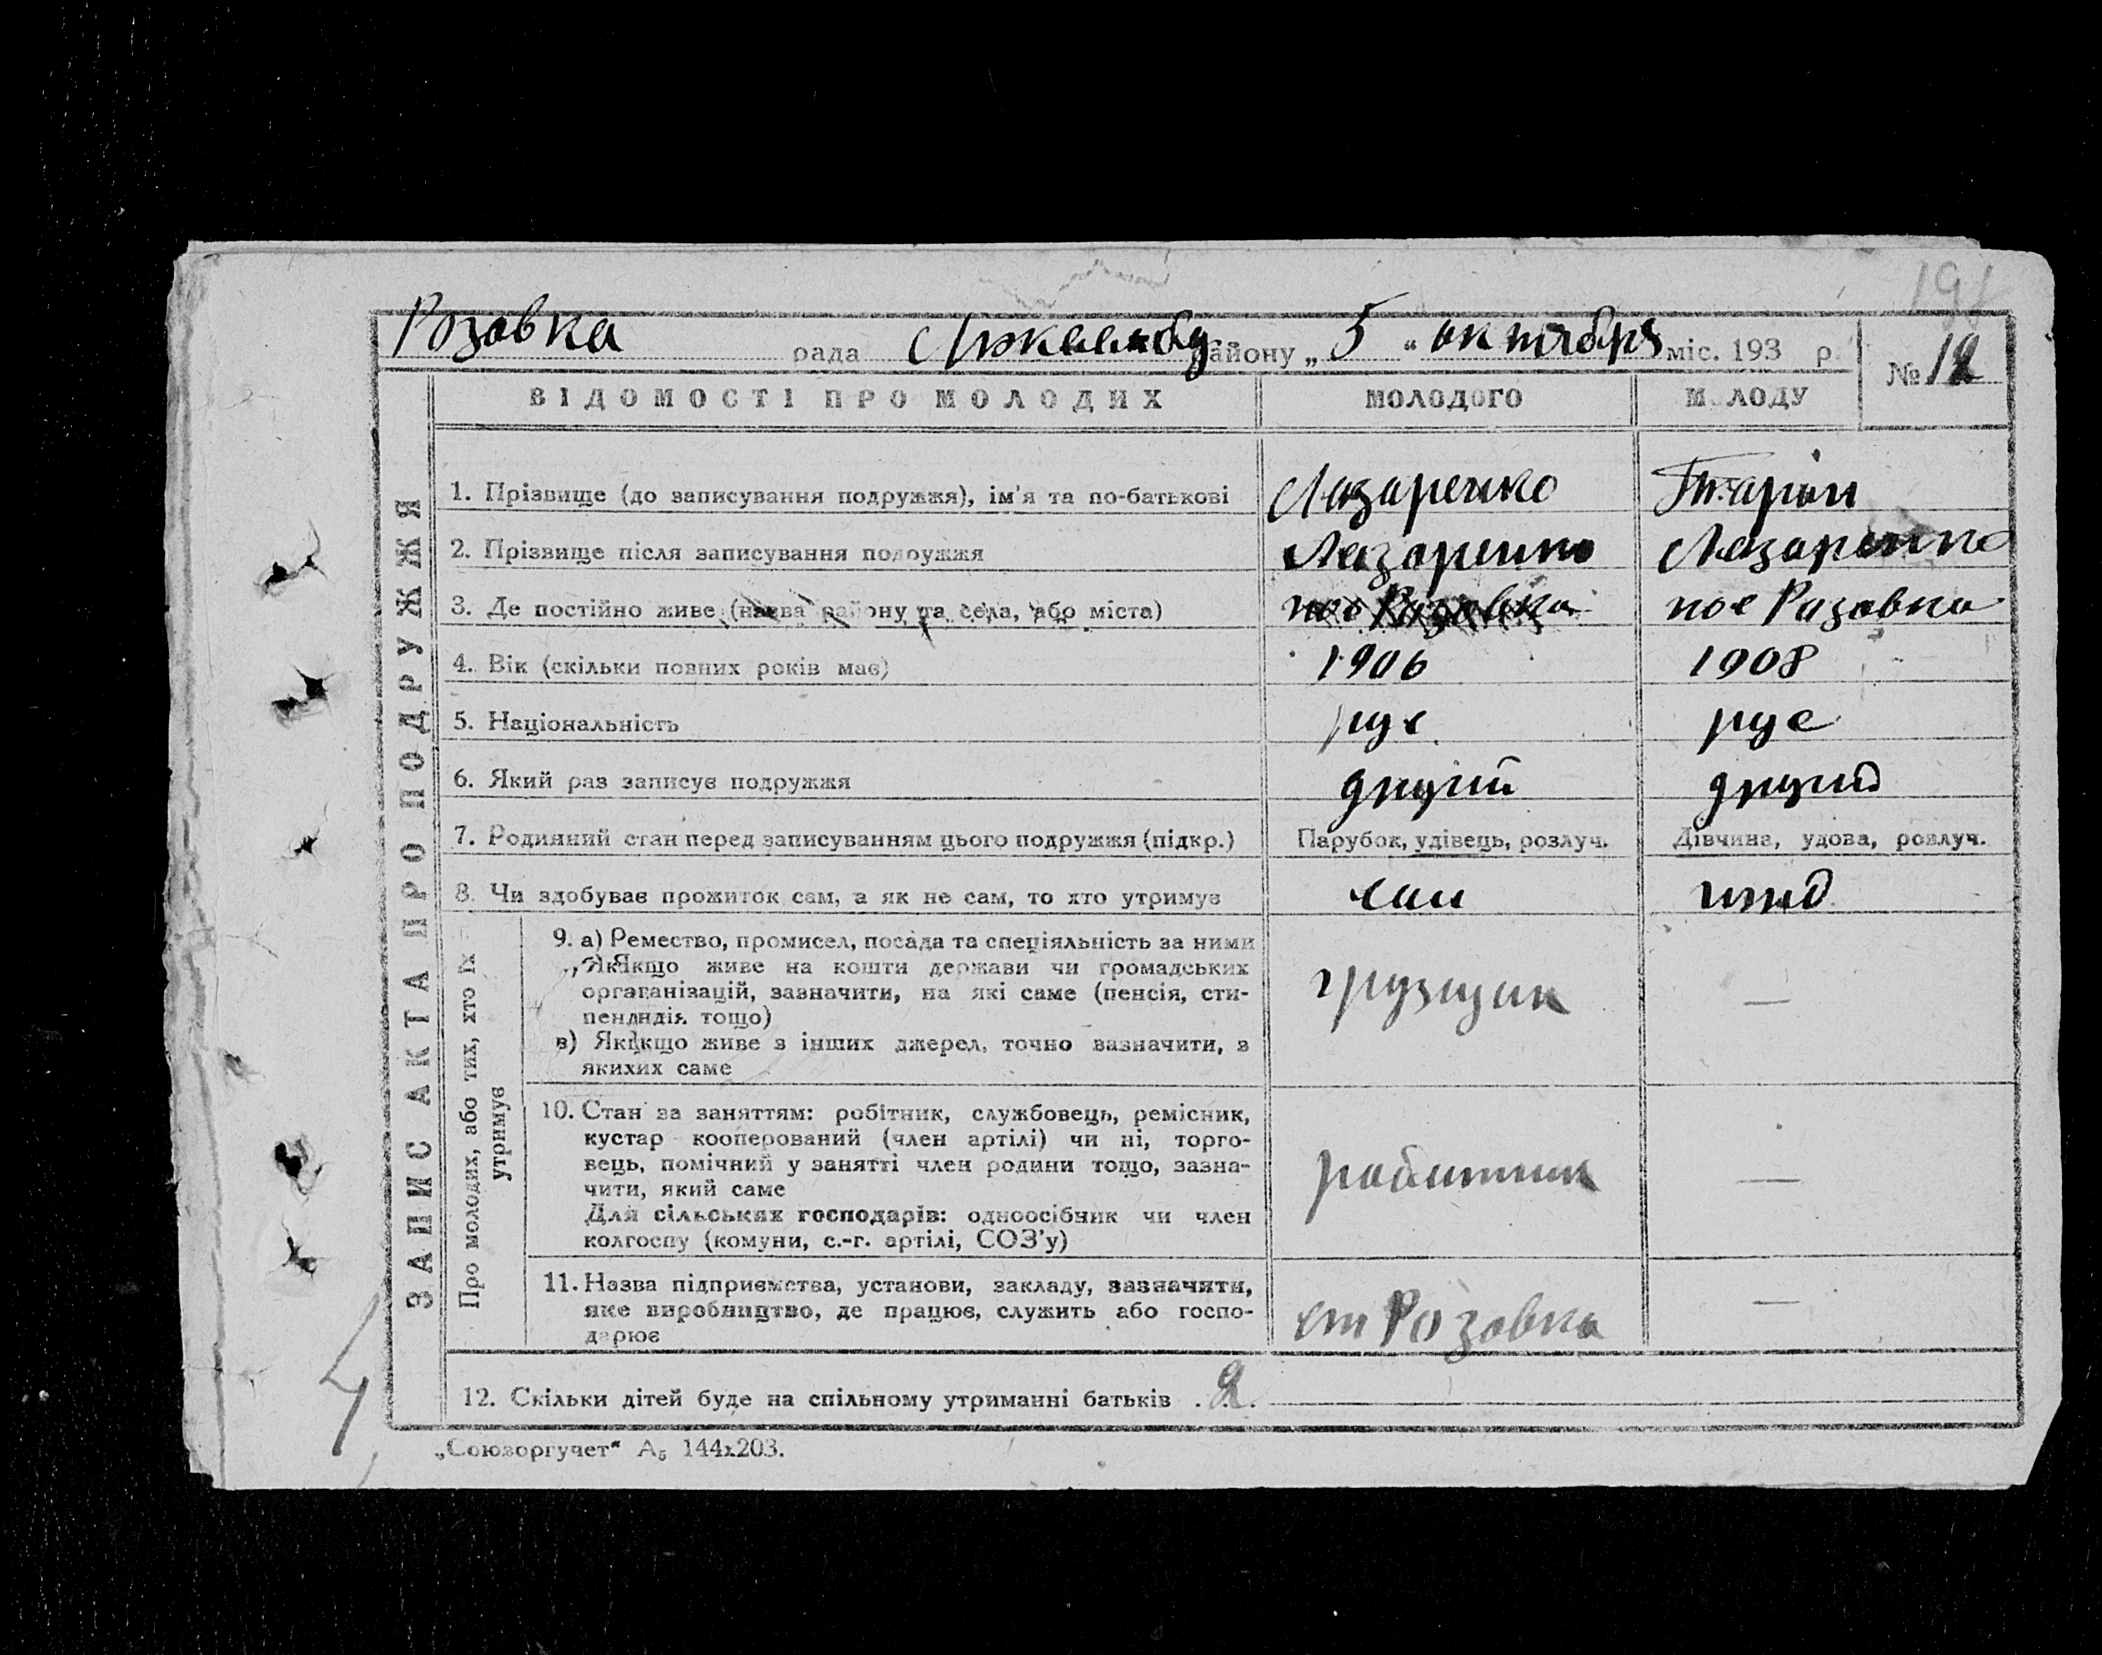 191
Розовка рада району „ 5 “ октября міс. 193 р.
№ 12
ВІДОМОСТІ ПРО МОЛОДИХ МОЛОДОГО МОЛОДУ
ЗАПИС АКТА ПРО ПОДРУЖЖЯ
1. Прізвище (до записування подружжя), ім'я та по-батькові Лазаренко
2. Прізвище після записування подружжя Лазаренко Лазаренко
3. Де постійно живе (назва району та села, або міста) пос Розовка пос Розовка
4. Вік (скільки повних років має) 1906 1908
5. Національність рус рус
6. Який раз записує подружжя другий другий
7. Родинний стан перед записуванням цього подружжя (підкр.) Парубок, удівець, розлуч. Дівчина, удова, розлуч.
8. Чи здобуває прожиток сам, а як не сам, то хто утримує сам
Про молодих, або тих, хто їх
утримує
9. а) Ремество, промисел, посада та спеціяльність за ними
Якщо живе на кошти держави чи громадських
організацій, зазначити, на які саме (пенсія, сти-
пендія тощо)
в) Якщо живе з інших джерел, точно зазначити, з
яких саме
грузщик —
10. Стан за заняттям: робітник, службовець, ремісник,
кустар кооперований (член артілі) чи ні, торго-
вець, помічний у занятті член родини тощо, зазна-
чити, який саме
Для сільських господарів: одноосібник чи член
колгоспу (комуни, с.-г. артілі, СОЗ'у)
работник —
11. Назва підприємства, установи, закладу, зазначити,
яке виробництво, де працює, служить або госпо-
дарює
ст Розовка —
12. Скільки дітей буде на спільному утриманні батьків . 2.
4
„Союзоргучет“ А₅ 144х203.